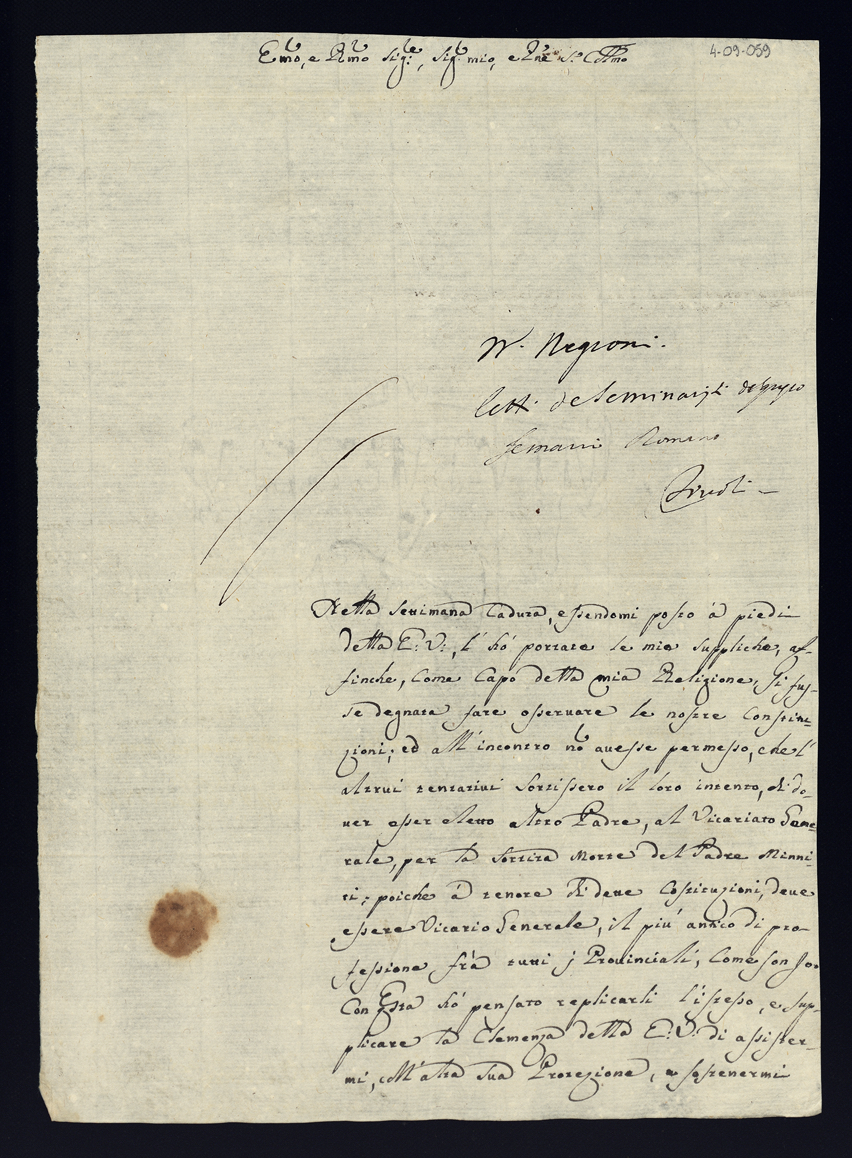 4-09-059
Emo, e Rmo Sig:, Sig. mio, e Pne Colmo
W. Negroni.
lett. de Seminaristi
Romano
Nella settimana caduta, essendomi posto à piedi
della E: V:, l'hò portate le mie suppliche, af-
finche, come Capo della mia Religione, si fus-
se degnata fare osservare le nostre Constitu-
zioni; ed all'incontro nō avesse permesso, che l'
altrui tentativi sortissero il loro intento, di do-
ver esser eletto altro Padre, al Vicariato Gene-
rale, per la sortita Morte del Padre Minni-
ti; poiche à tenore di dette Costituzioni, deve
essere Vicario Generale, il più antico di pro-
fessione frà tutti j Provinciali, come son Jo.
Con Esta hò pensato replicarli l'istesso, e sup-
plicare la Clemenza della E: V: di assister-
mi, coll'alta sua Protezione, e sostenermi